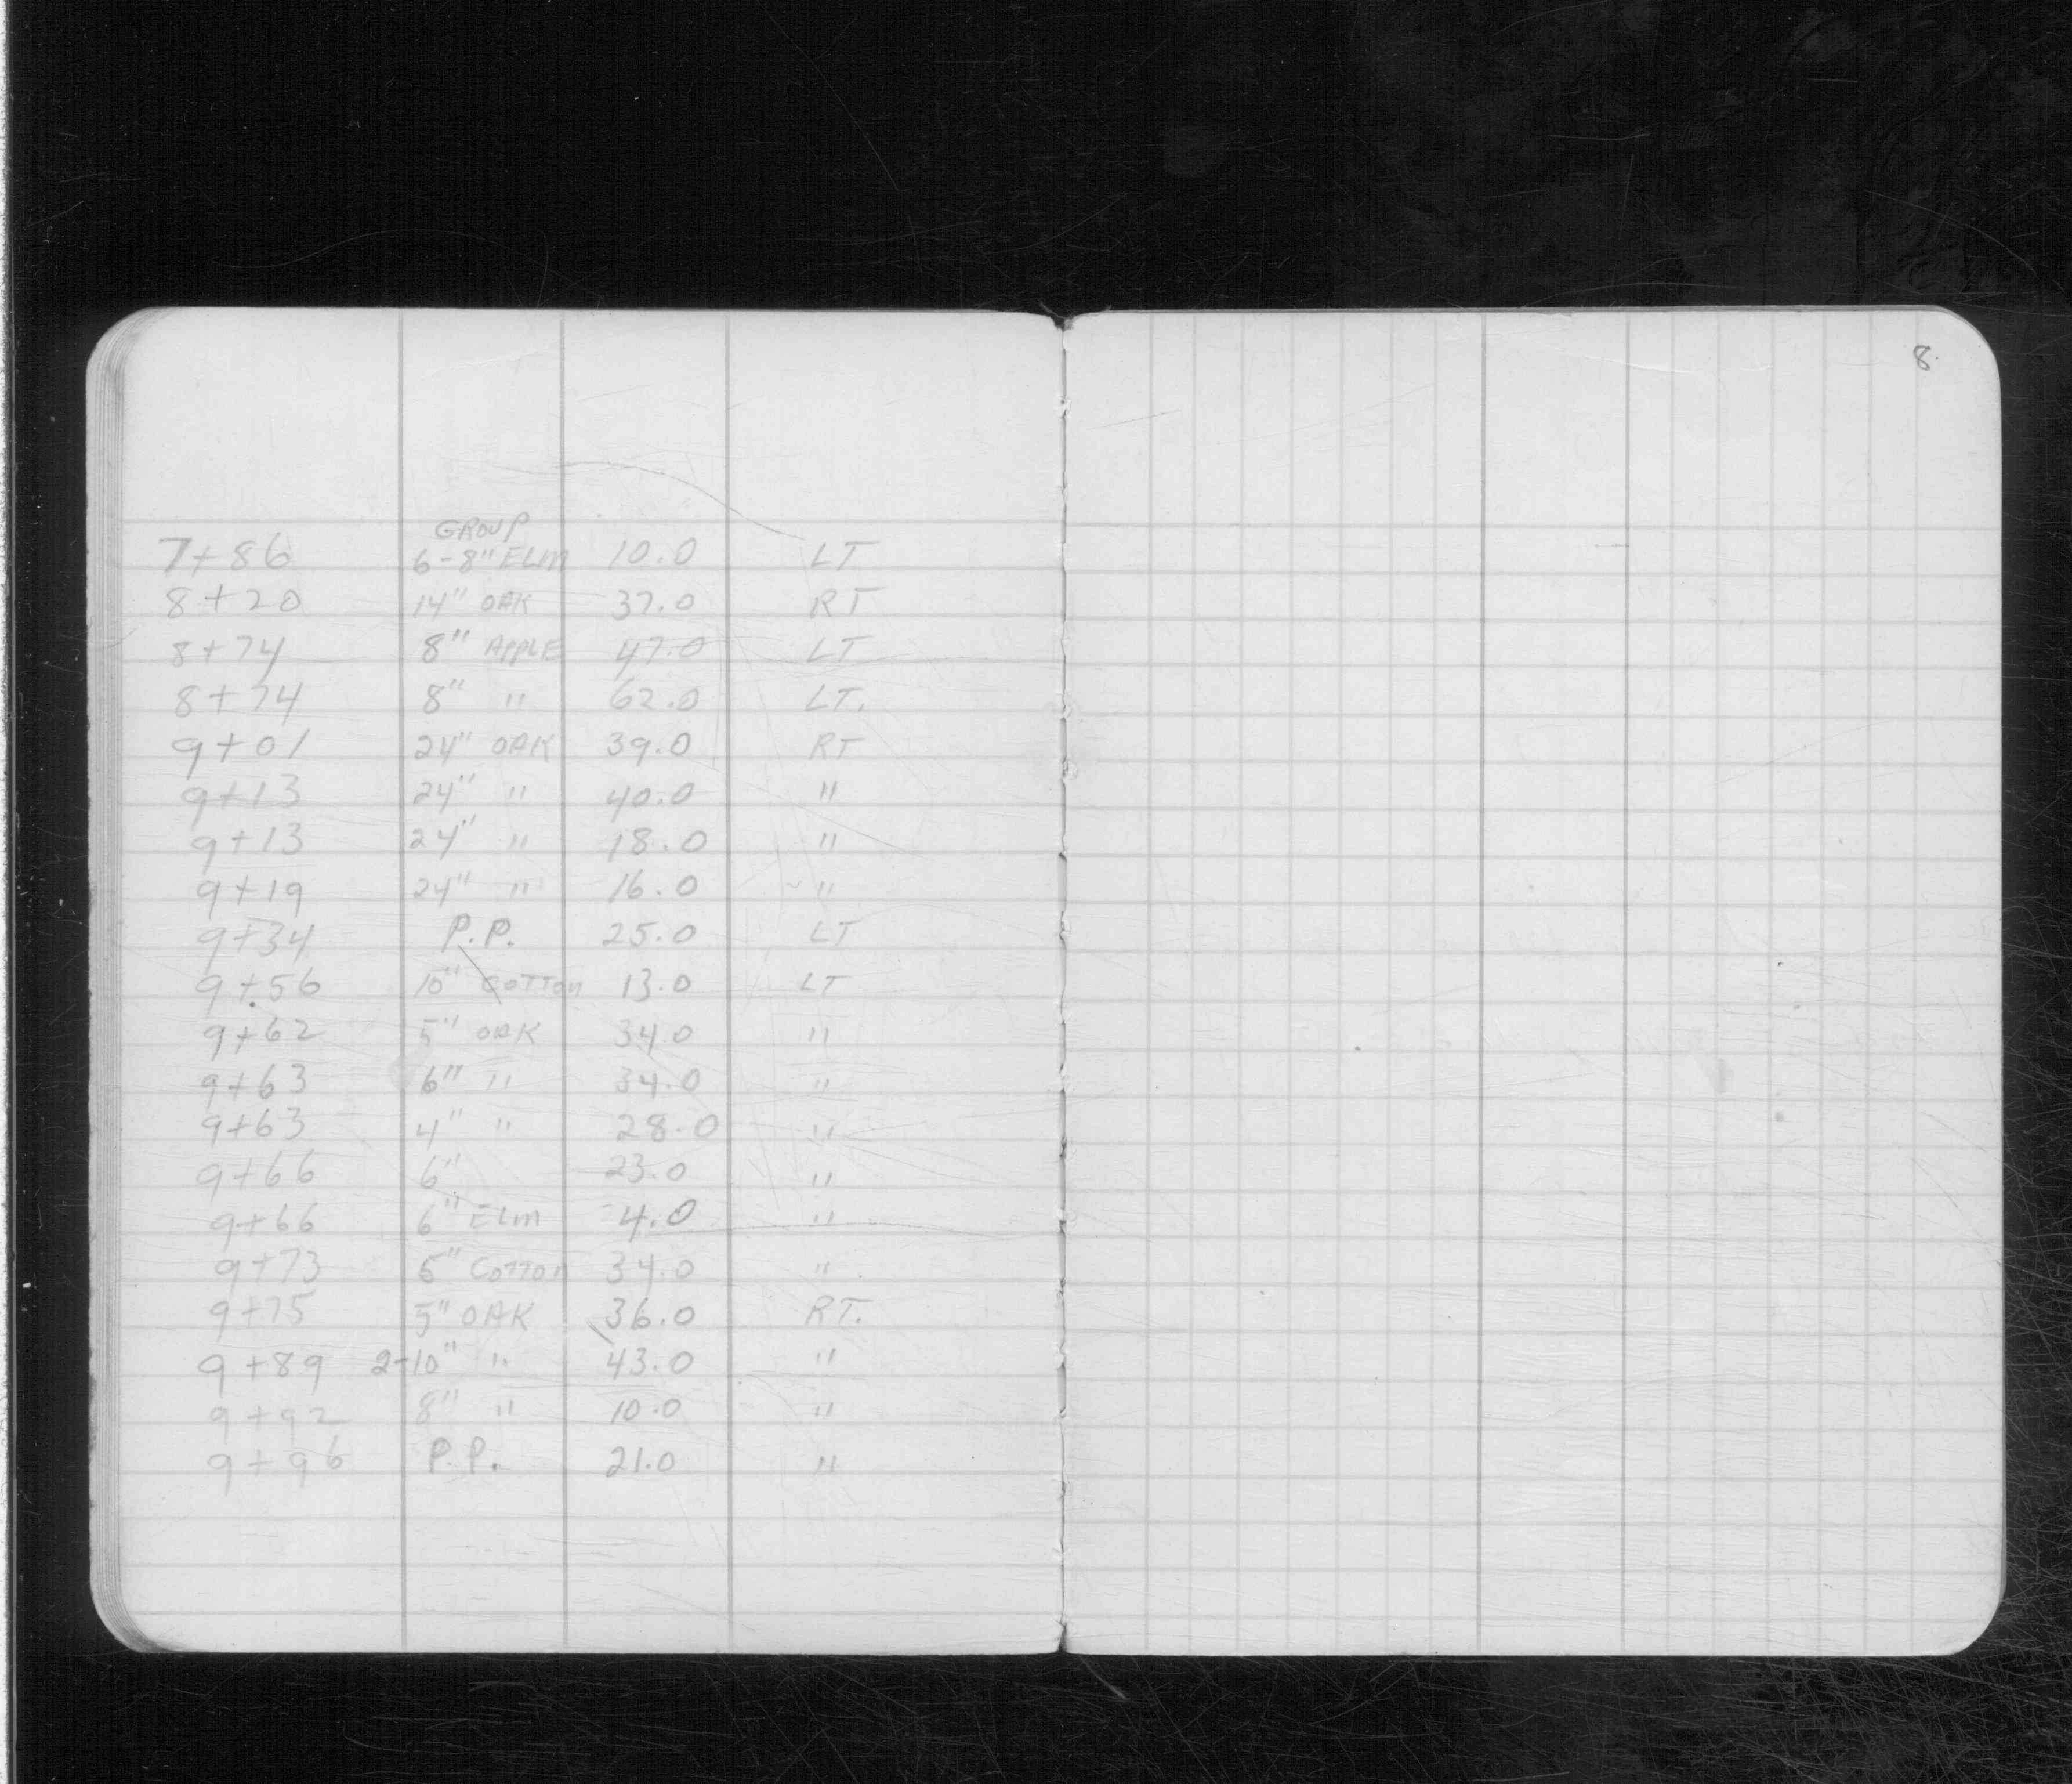 8
GROUP
7+86 6-8" ELM 10.0 LT
8+20 14" OAK 37.0 RT
8+74 8" APPLE 47.0 LT
8+74 8" " 62.0 LT.
9+01 24" OAK 39.0 RT
9+13 24" " 40.0 "
9+13 24" " 18.0 "
9+19 24" " 16.0 "
9+34 P.P. 25.0 LT
9+56 10" COTTON 13.0 LT
9+62 5" OAK 34.0 "
9+63 6" " 34.0 "
9+63 4" " 28.0 "
9+66 6" 23.0 "
9+66 6" ELM 4.0 "
9+73 COTTON 34.0 "
9+75 5" OAK 36.0 RT.
9+89 2-10" " 43.0 "
9+92 8" " 10.0 "
9+96 P.P. 21.0 "